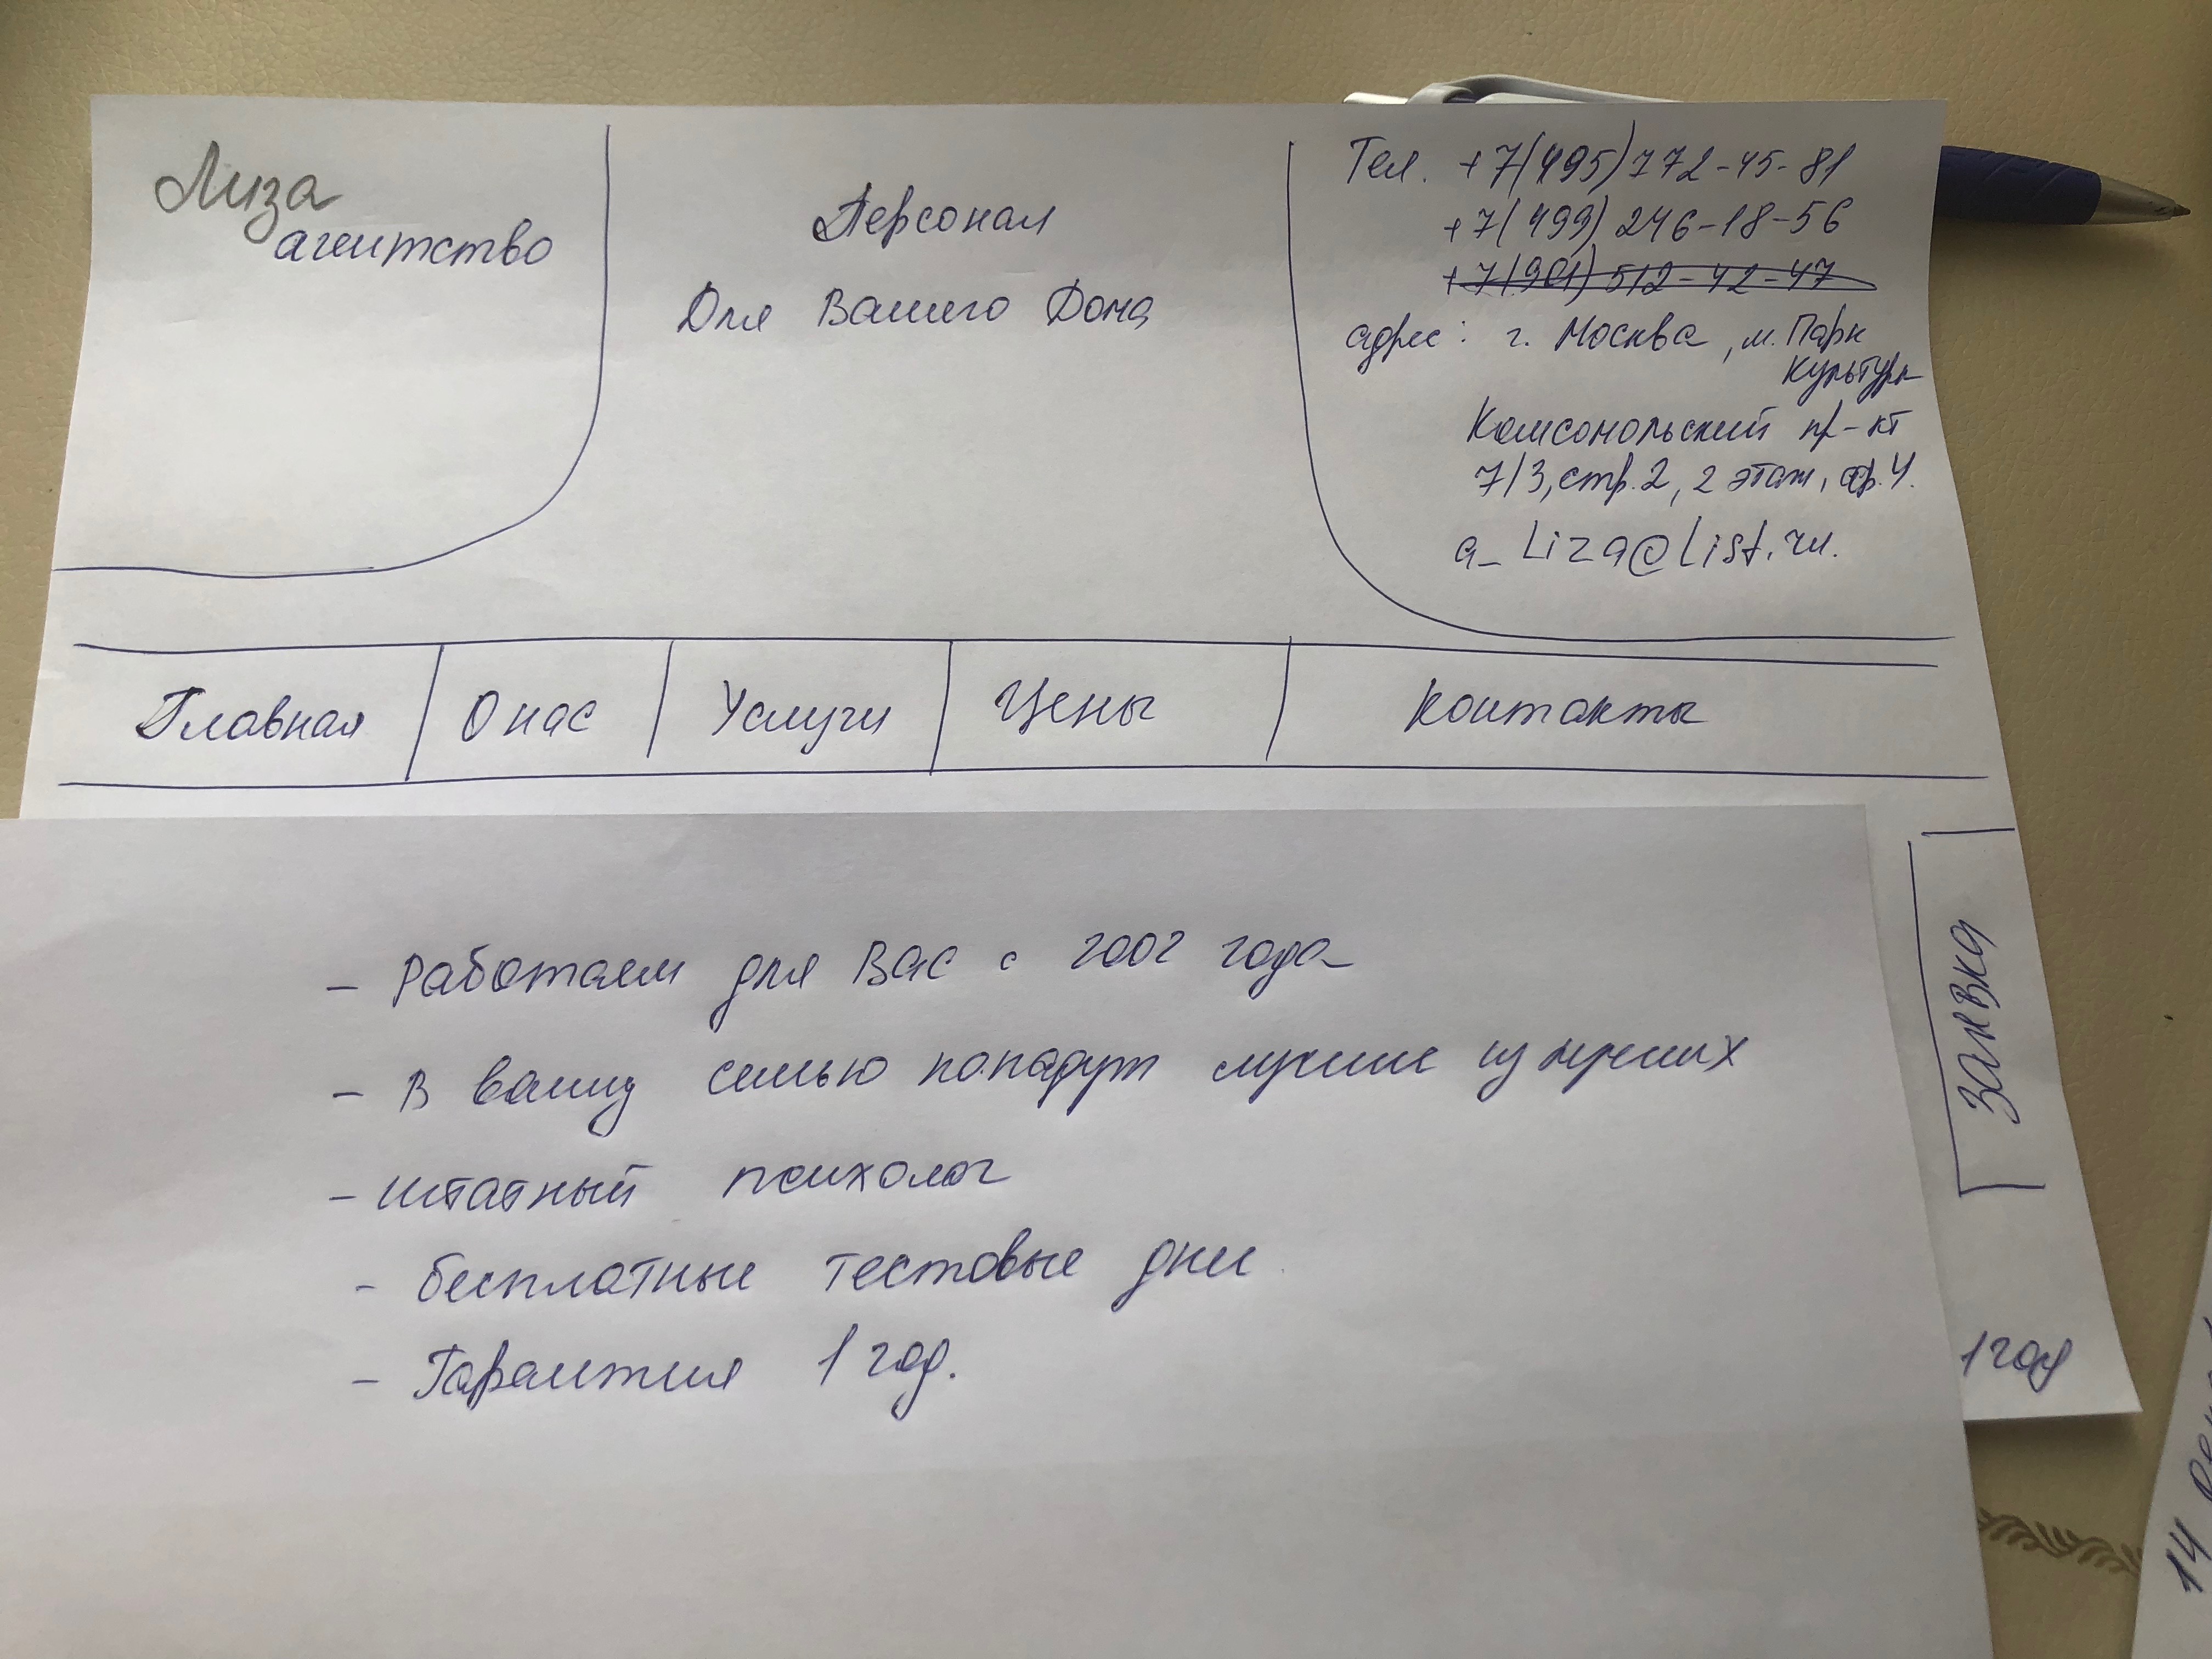 Лиза
агентство
Персонал
Для Вашего Дома
Тел. +7(495)772-45-81
+7(499) 246-18-56
+7(901) 512-42-47
адрес: г. Москва, м. Парк
Культуры
Комсомольский пр-кт
7/3, стр. 2, 2 этаж, оф. 4.
a_Liza@list.ru.
Главная
О нас
Услуги
Цены
Контакты
- Работаем для Вас с 2002 года
- В вашу семью попадут лучшие из лучших
- штатный психолог
- бесплатные тестовые дни
- Гарантия 1 год.
Заявка
1 год
14